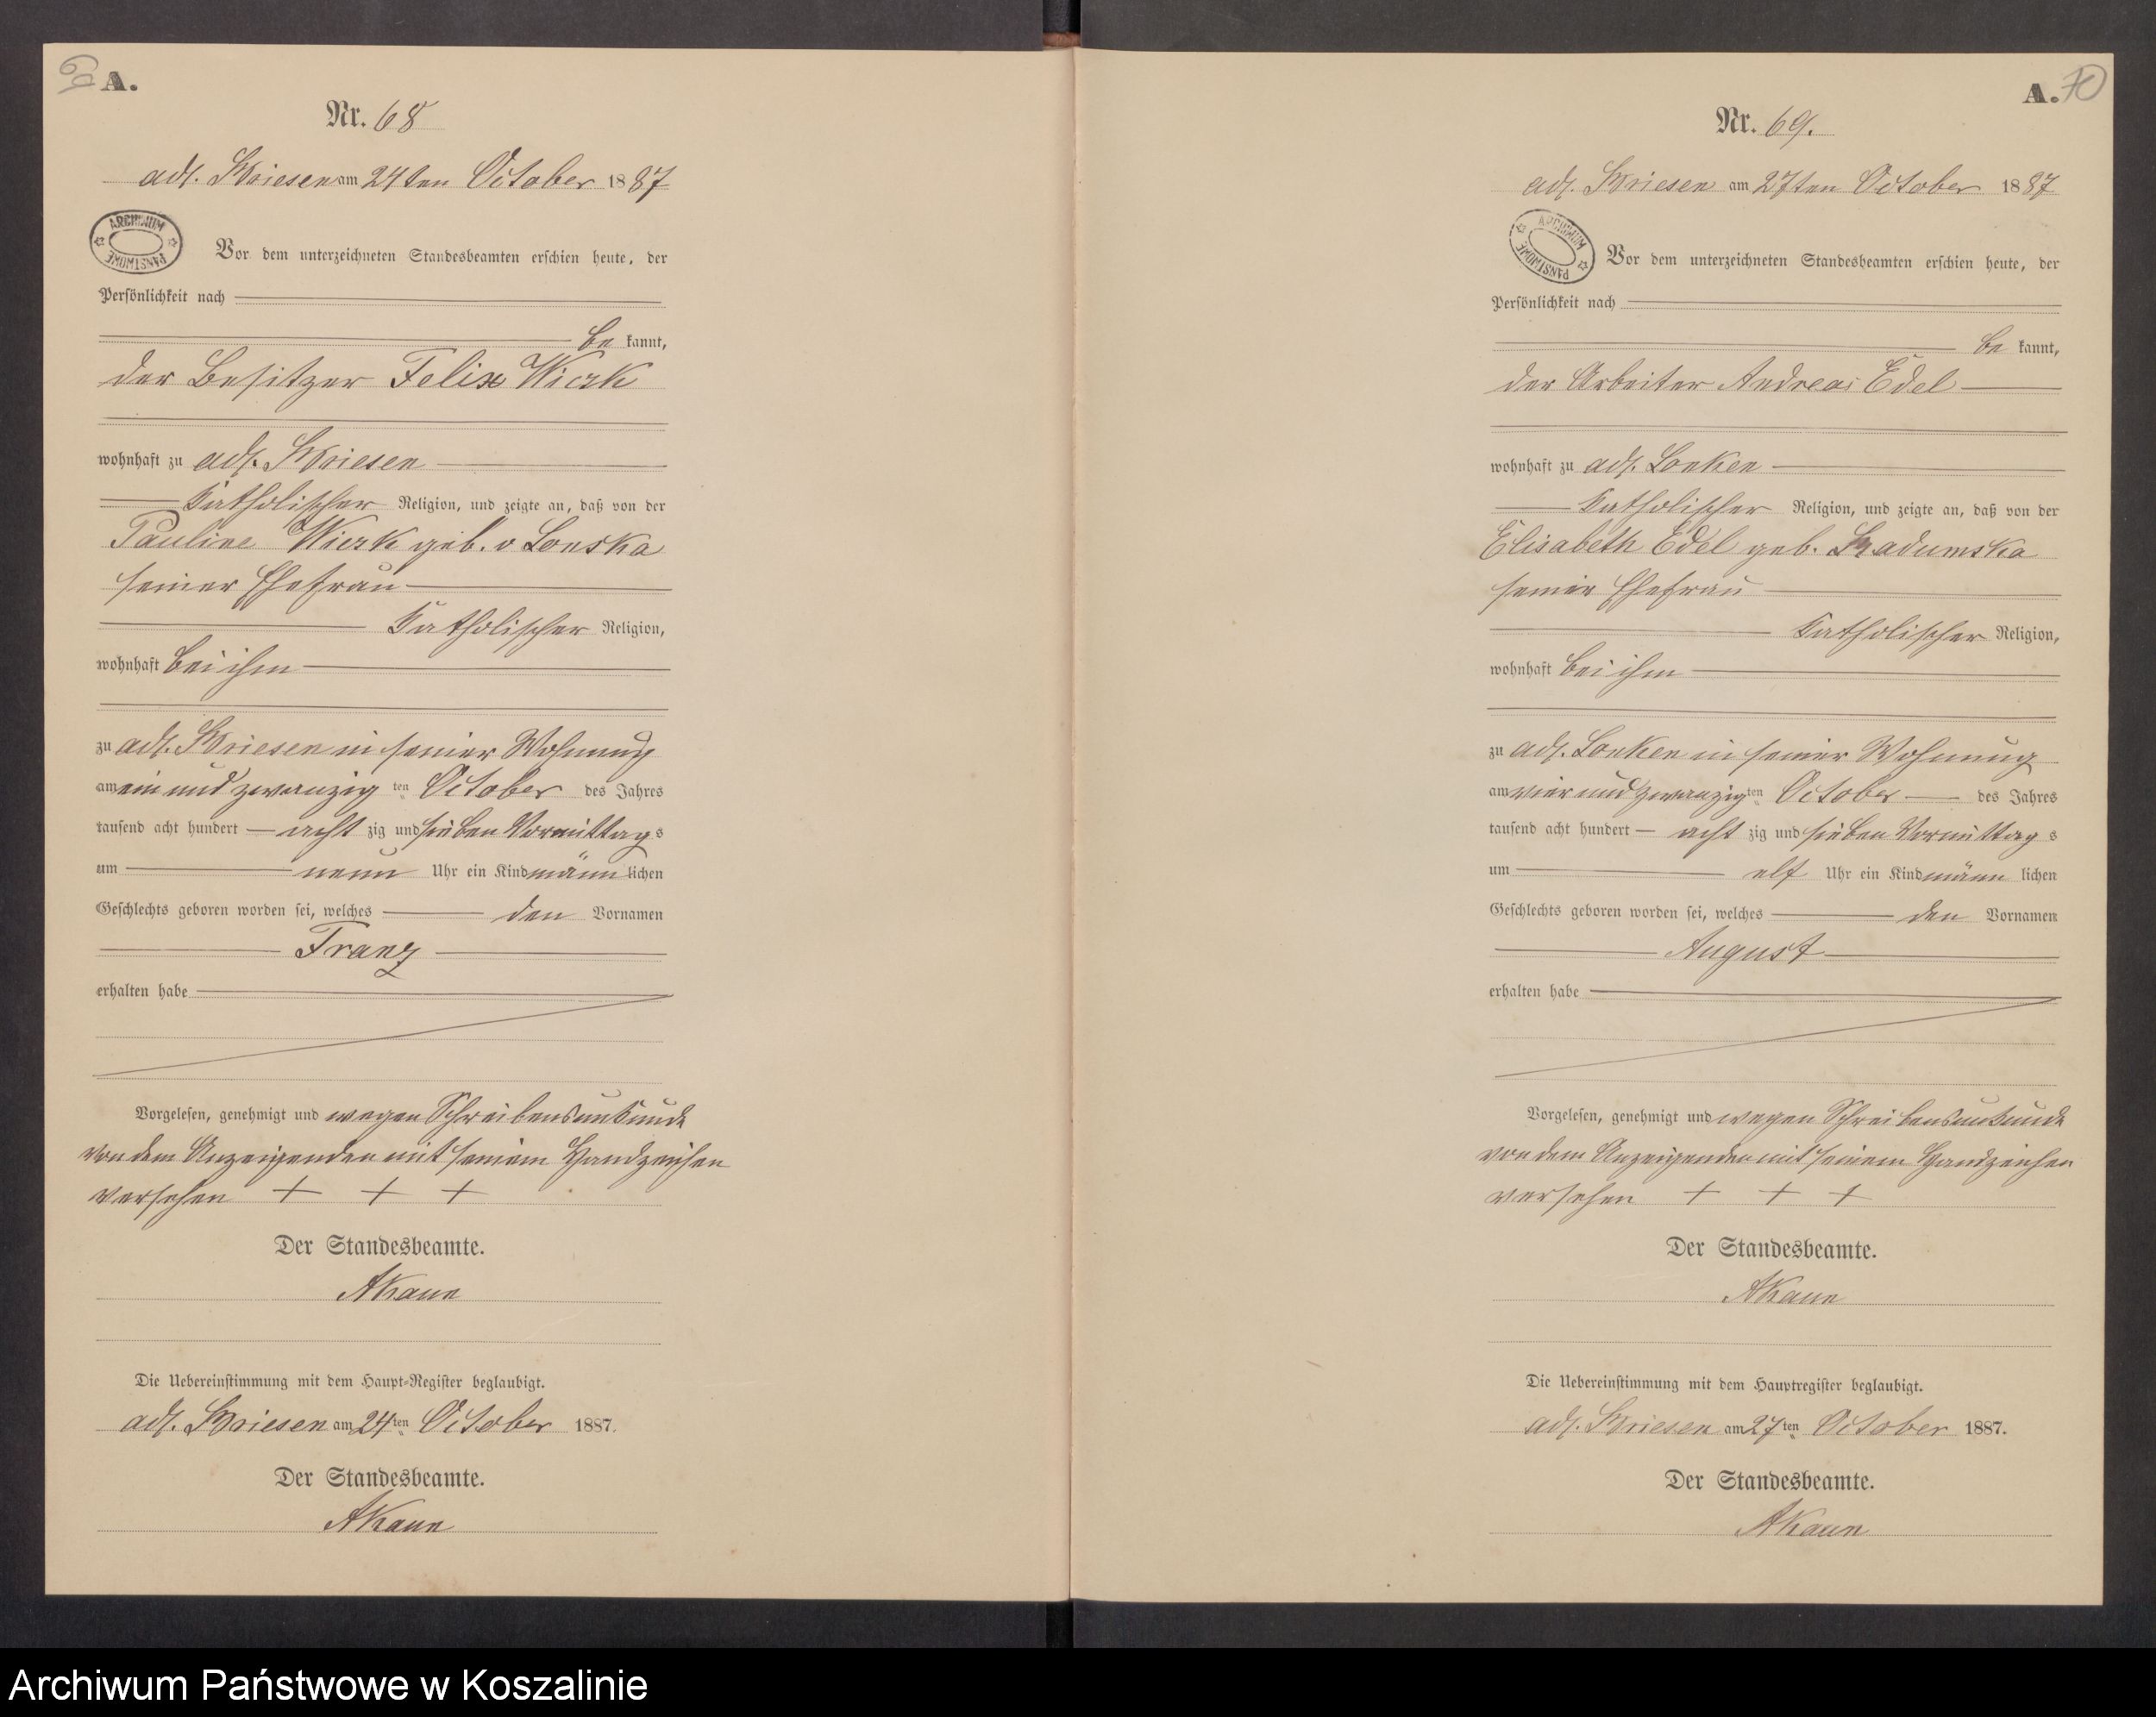 69
A.
Nr. 68
adl. Briesen am 24ten October 1887
ARCHIWUM PAŃSTWOWE
Vor dem unterzeichneten Standesbeamten erschien heute, der
Persönlichkeit nach
be kannt,
der Besitzer Felix Wirzk
wohnhaft zu adl. Briesen
Katholischer Religion, und zeigte an, daß von der
Pauline Wirzk geb. v Lonska
seiner Ehefrau
Katholischer Religion,
wohnhaft bei ihm
zu adl. Briesen in seiner Wohnung
am ein und zwanzig ten October des Jahres
tausend acht hundert acht zig und sieben Vormittag s
um neun Uhr ein Kind männ lichen
Geschlechts geboren worden sei, welches den Vornamen
Franz
erhalten habe
Vorgelesen, genehmigt und wegen Schreibensunkunde
von dem Anzeigenden mit seinem Handzeichen
versehen + + +
Der Standesbeamte.
AKaun
Die Uebereinstimmung mit dem Haupt-Register beglaubigt.
adl. Briesen am 24ten October 1887.
Der Standesbeamte.
AKaun
A. 70
Nr. 69.
adl. Briesen am 27ten October 1887
ARCHIWUM PAŃSTWOWE
Vor dem unterzeichneten Standesbeamten erschien heute, der
Persönlichkeit nach
be kannt,
der Arbeiter Andreas Edel
wohnhaft zu adl. Lonken
Katholischer Religion, und zeigte an, daß von der
Elisabeth Edel geb. Radumska
seiner Ehefrau
Katholischer Religion,
wohnhaft bei ihm
zu adl. Lonken in seiner Wohnung
am vier und zwanzig ten October des Jahres
tausend acht hundert acht zig und sieben Vormittag s
um elf Uhr ein Kind männ lichen
Geschlechts geboren worden sei, welches den Vornamen
August
erhalten habe
Vorgelesen, genehmigt und wegen Schreibensunkunde
von dem Anzeigenden mit seinem Handzeichen
versehen + + +
Der Standesbeamte.
AKaun
Die Uebereinstimmung mit dem Hauptregister beglaubigt.
adl. Briesen am 27ten October 1887.
Der Standesbeamte.
AKaun
Archiwum Państwowe w Koszalinie